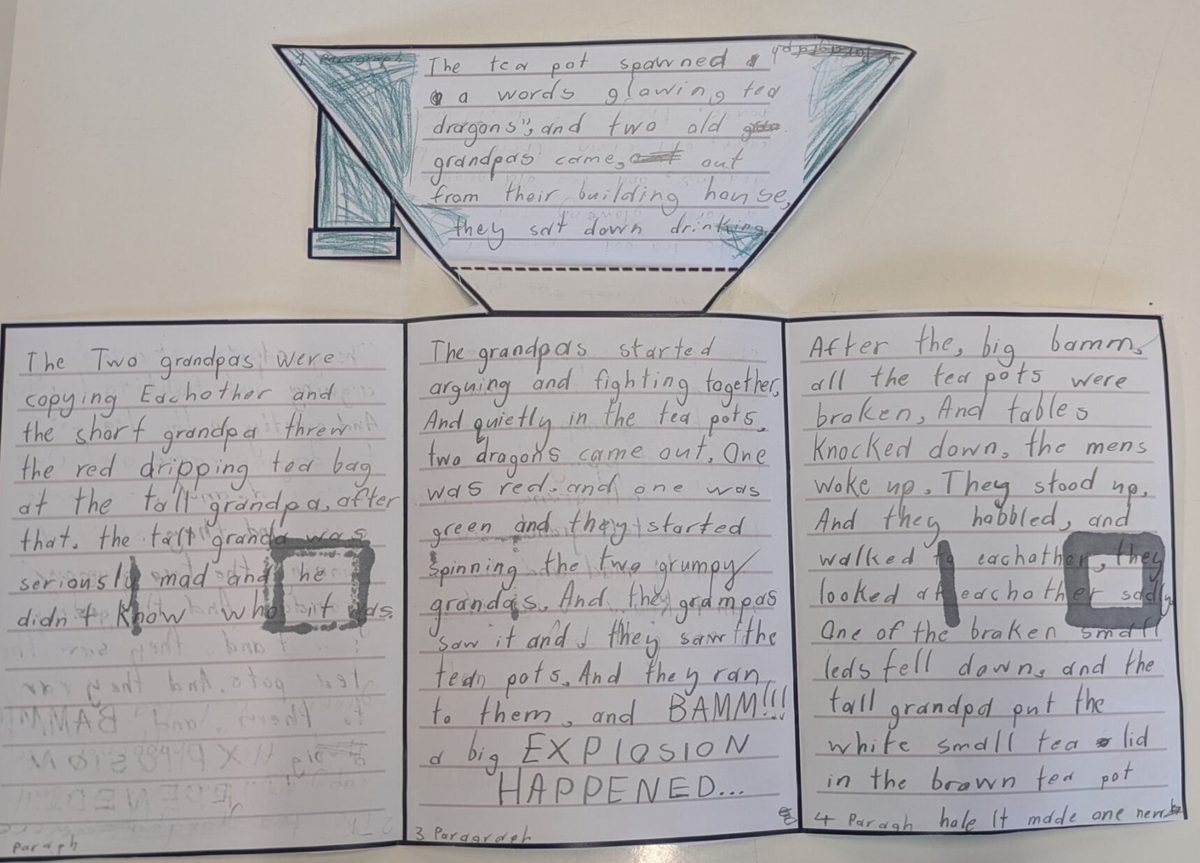 1 Paragraph
The tea pot spawned
a words glowing tea
dragons", and two old
grandpas came, out
from their building house,
they sat down drinking
The Two grandpas were
copying Eachother and
the short grandpa threw
the red dripping tea bag
at the tall grandpa, after
that. the tall granda was
seriously mad and he
didn't know who it was.
Paraph
The grandpas started
arguing and fighting together,
And quietly in the tea pots,
two dragons came out. One
was red. and one was
green and they started
spinning the two grumpy
grandas. And the grampas
saw it and, they saw the
tean pots. And they ran
to them, and BAMM!!!
a big EXPlOSION
HAPPENED...
3 Paragraph
After the, big bamm,
all the tea pots were
broken, And tables
Knocked down, the mens
woke up. They stood up,
And they hobbled, and
walked to eachother, they
looked at eachother sadly
One of the broken small
leds fell down, and the
tall grandpa put the
white small tea lid
in the brown tea pot
4 Paragh hole It made one new